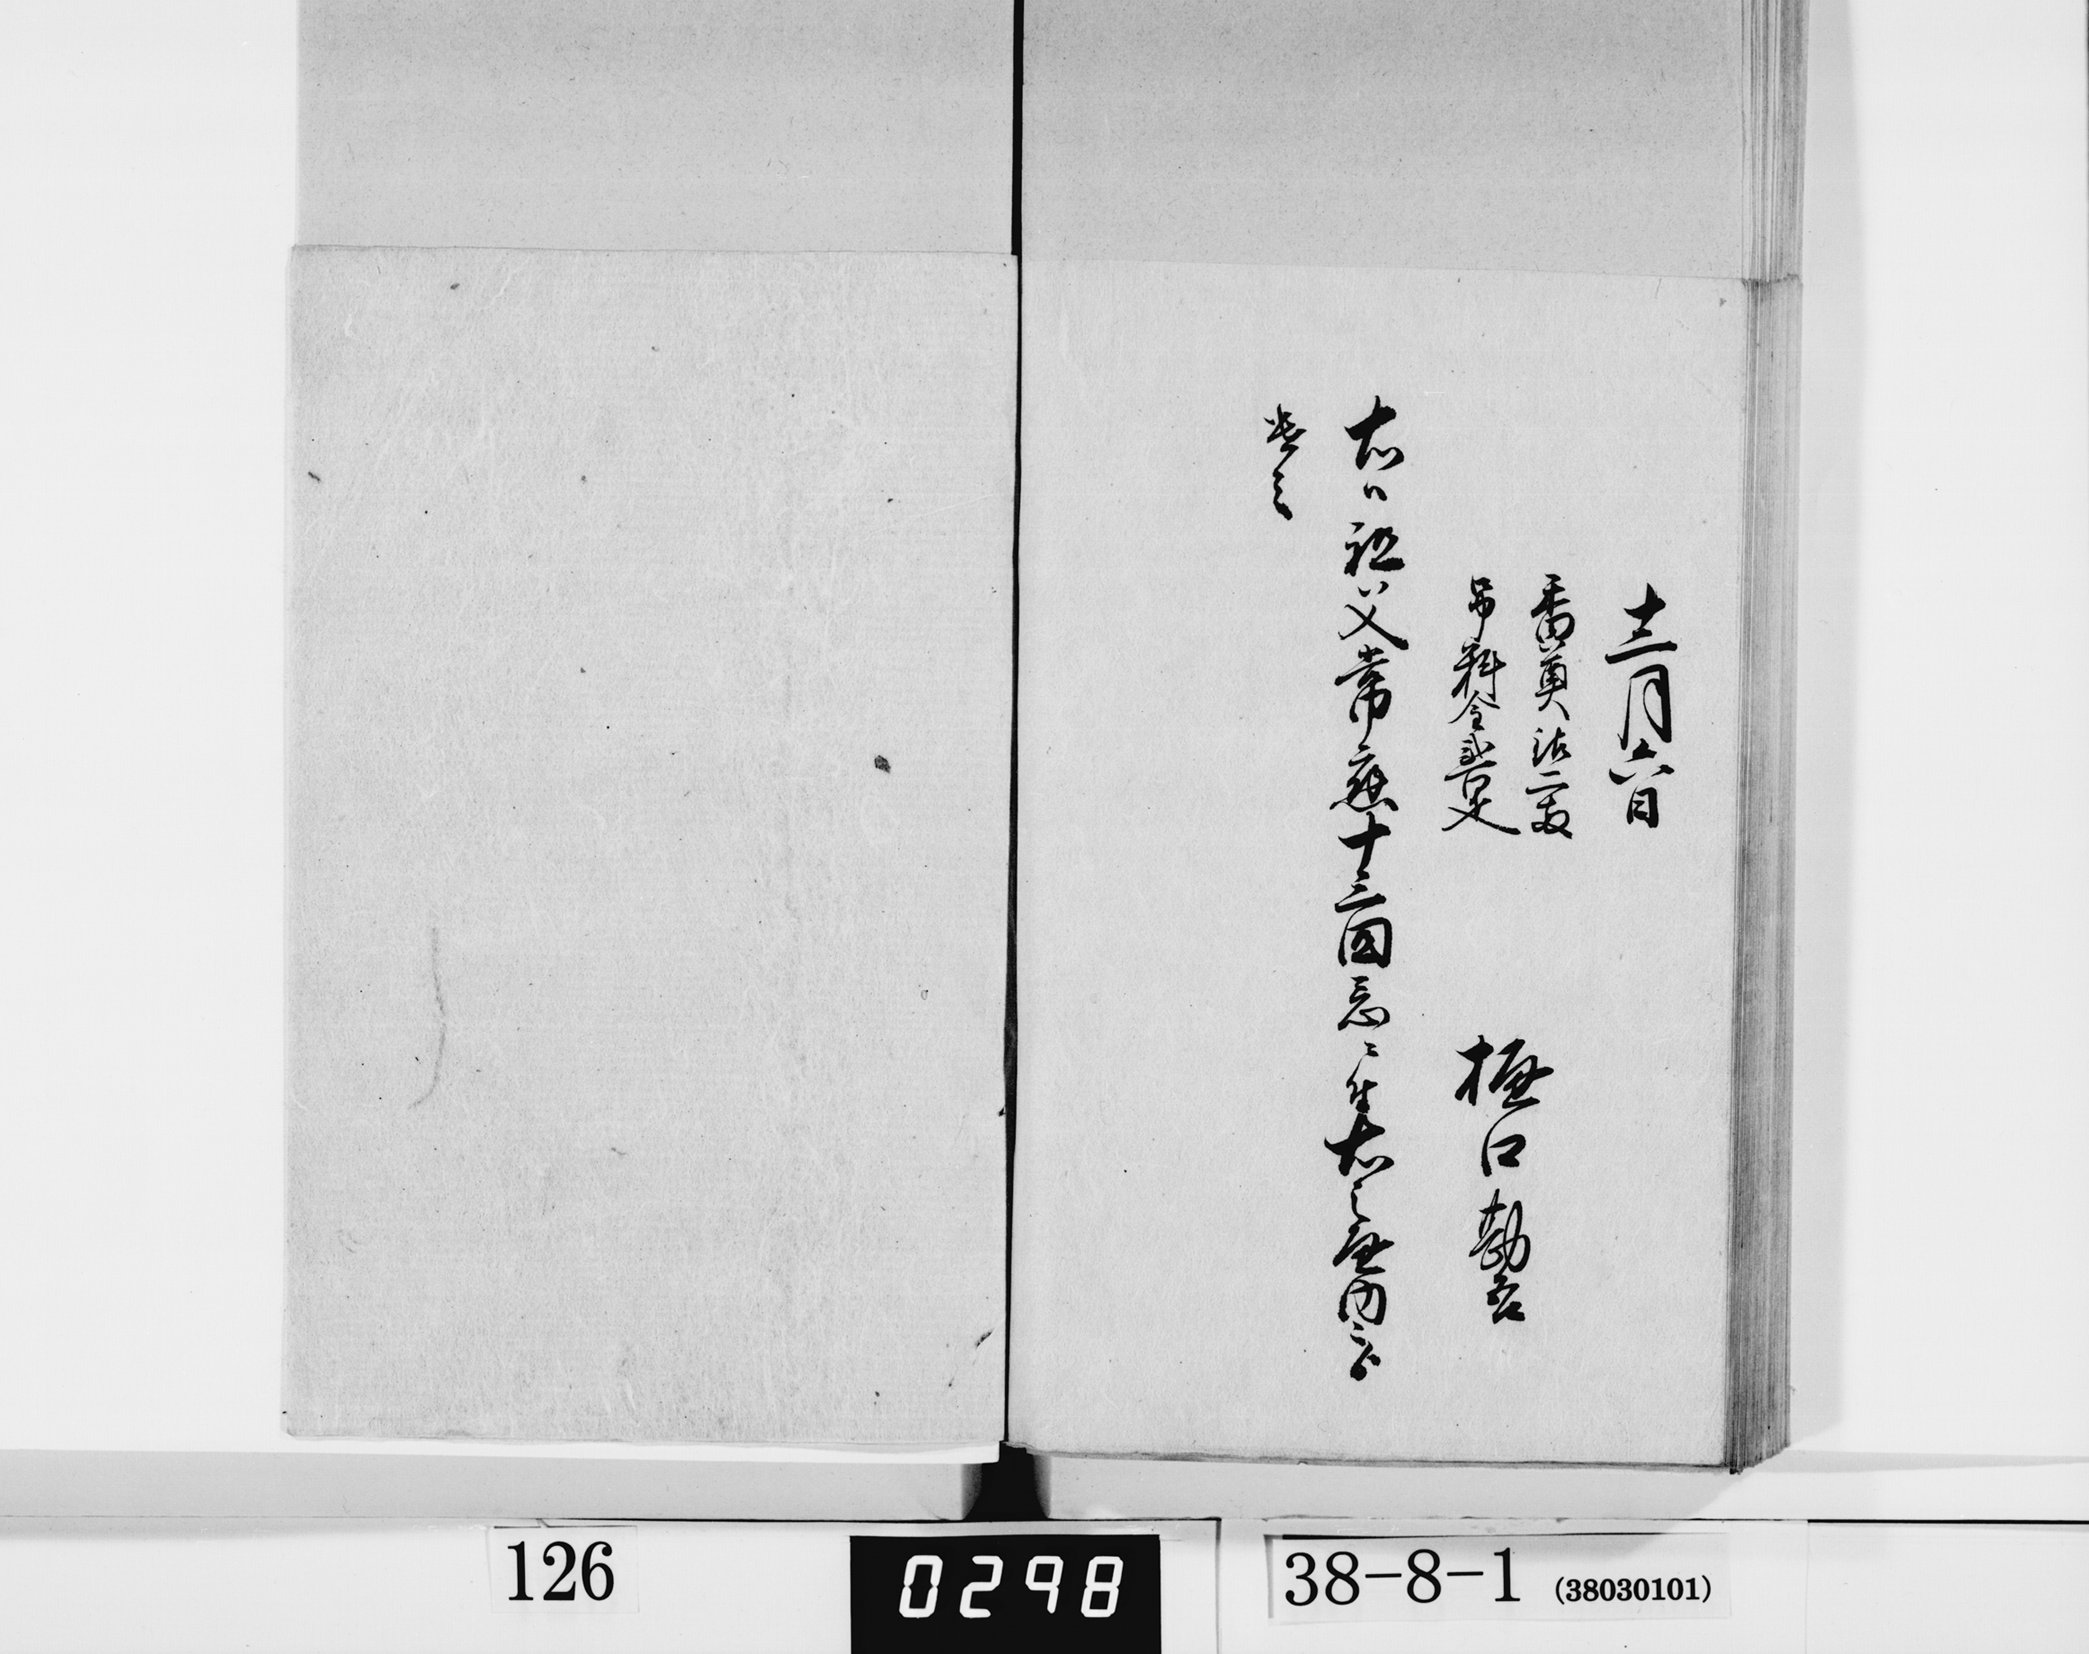 十二月六日
香奠 二
吊料金弐百疋
樋口勘
右ハ祖父常應十三回忌ニ付右之通内
遣之
126
0298
38-8-1 (38030101)